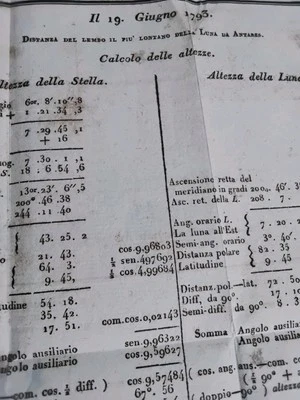 Il 19. Giugno 1793.
Distanza del lembo il piu' lontano della Luna da Antares.
Calcolo delle altezze.
ltezza della Stella.
Altezza della Lun
6or. 8'.10",8
+ 1 .21 .34 ,3
7 .29 .45 ,1
+ 16
7 .30 . 1 ,1
S. 18 ; 6 .54 ,6
13or.23'. 6",5
200°.46 .38
244 .11 .40
Ascensione retta del
meridiano in gradi 200°. 46'. 3
Asc. ret. della L. 208 . 7 .
43. 25. 2
21. 43.
64. 3.
9. 45,
cos.9,96803
½ sen.497692
½ cos.4,99684
Ang. orario L. 7 . 20 .
La luna all'Est
Semi-ang. orario 3°. 40'.
Distanza polare 82 . 35
Latitudine 9 . 45
tudine 54. 18.
35. 42.
17. 51.
com.cos.0,02143
Distanz.pol-lat. 72 . 50
Diff, da 90°. 17 . 10
Semi-diff. da 90°. 8 .
sen.9,96322
cos.9,59627
ngolo ausiliario
ngolo ausiliario
Somma
Angolo ausiliar
Angolo ausiliar
cos.9,57484
67°. 56
com. cos.½ diff. )
( cos. ang. aus.—com. c
(½ 90° +
( doppio—90°) altezz